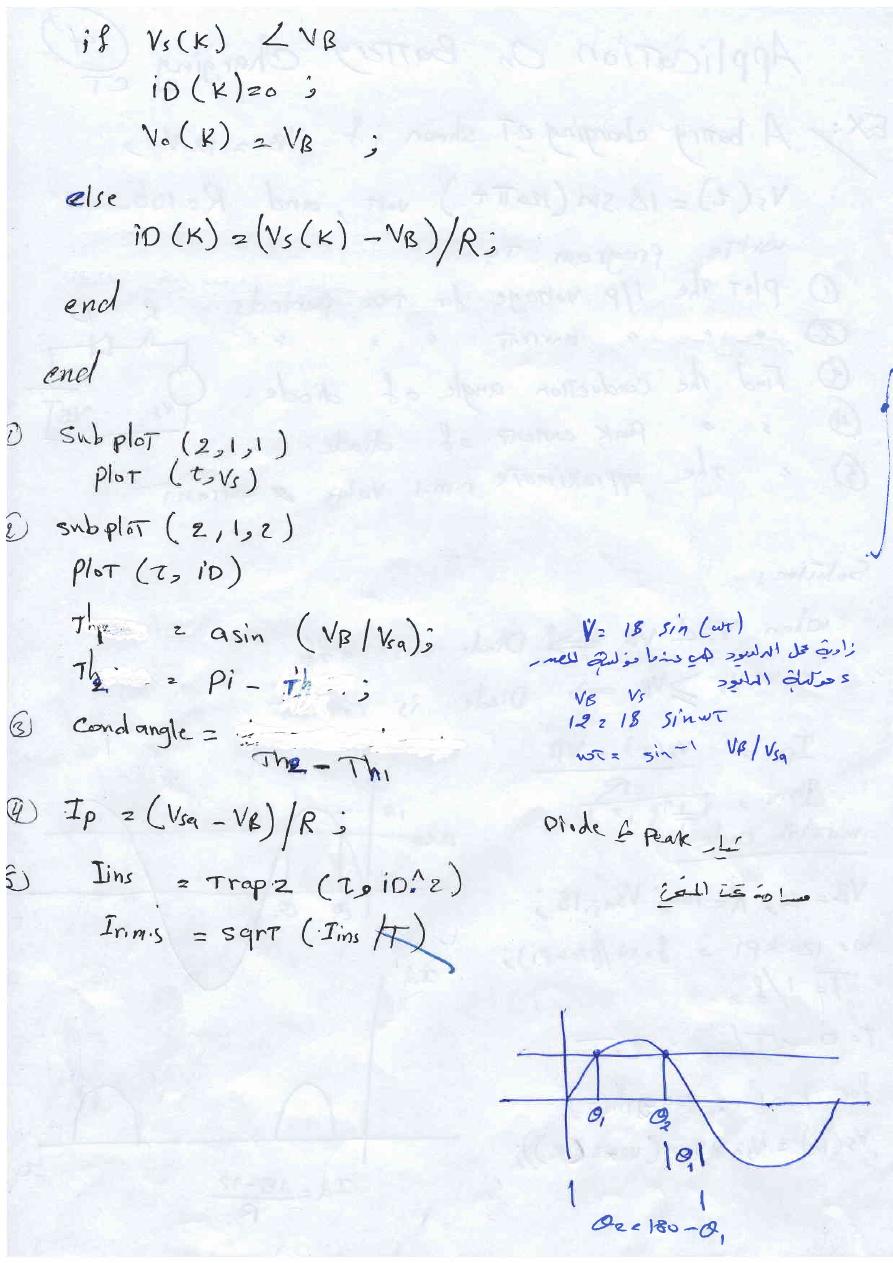 if Vs(K) < VB
iD(K)=0 ;
Vo(K) = VB ;
else
iD(K) = (Vs(K) - VB)/R;
end
end
① Subplot (2,1,1)
plot (t,Vs)
② subplot (2,1,2)
plot (t, iD)
Th1 = asin (VB/Vsa);
Th2 = Pi - Th ;
③ Cond angle =
Th2 - Th1
V = 18 sin (wt)
زاوية عمل الدايود هي عندما فولتية المصدر
= فولتية الدايود
VB Vs
12 = 18 sin wt
wt = sin-1 VB/Vsa
④ Ip = (Vsa - VB)/R ;
تيار Peak ط Diode
5) Iins = Trapz (t, iD.^2)
مساحة تحت المنحني
Ir.m.s = sqrt (Iins /T)
θ1 θ2
|θ1|
θ2 = 180 - θ1